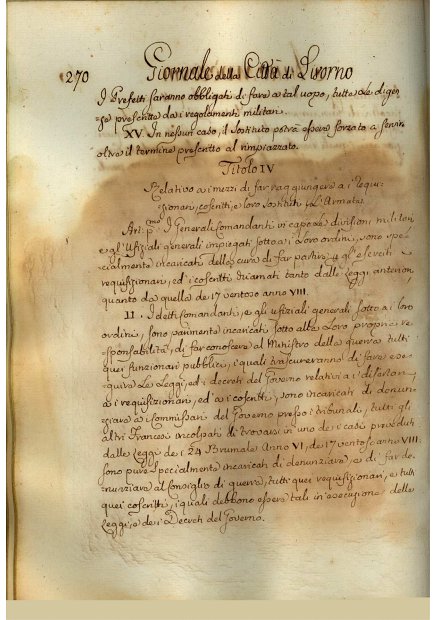 270 Giornale della Città di Livorno
I Prefetti saranno obbligati di fare a tal uopo, tutte le diligen=
ze prescritte dai regolamenti militari.
XV. In nessun caso, il sostituto potrà essere forzato a servire
oltre il termine prescritto al rimpiazzato.
Titolo IV
Relativo a i mezzi di far raggiungere a i Requi=
sizionari, coscritti, e loro sostituti l'Armata
Art: p.mo I Generali Comandanti in capo le divisioni militari
e gl'Ufiziali generali impiegati sotto a i loro ordini, sono spe=
cialmente incaricati della cura di far partire p. gl'eserciti i
requisizionari, ed i coscritti chiamati tanto dalle Leggi anteriori,
quanto da quella de 17 ventoso anno VIII.
II. I detti Comandanti, e gli ufiziali generali sotto a i loro
ordini, sono parimente incaricati sotto alla loro propria re=
sponsabilità, di far conoscere al Ministro della guerra tutti
quei funzionari pubblici, i quali trascureranno di fare ese=
guire le Leggi, ed i decreti del Governo relativi a i disertori,
a i requisizionari, ed a i coscritti; sono incaricati di denun=
ziare a' Commissari del Governo presso i tribunali, tutti gli
altri Francesi incolpati di trovarsi in uno de i casi preveduti
dalle Leggi de i 24 Brumale Anno VI, de 17 ventoso anno VIII:
sono pure specialmente incaricati di denunziare, e di far de=
nunziare al Consiglio di guerra, tutti quei requisizionari, e tutti
quei coscritti, i quali debbono essere tali in esecuzione delle
Leggi, e de i Decreti del Governo.